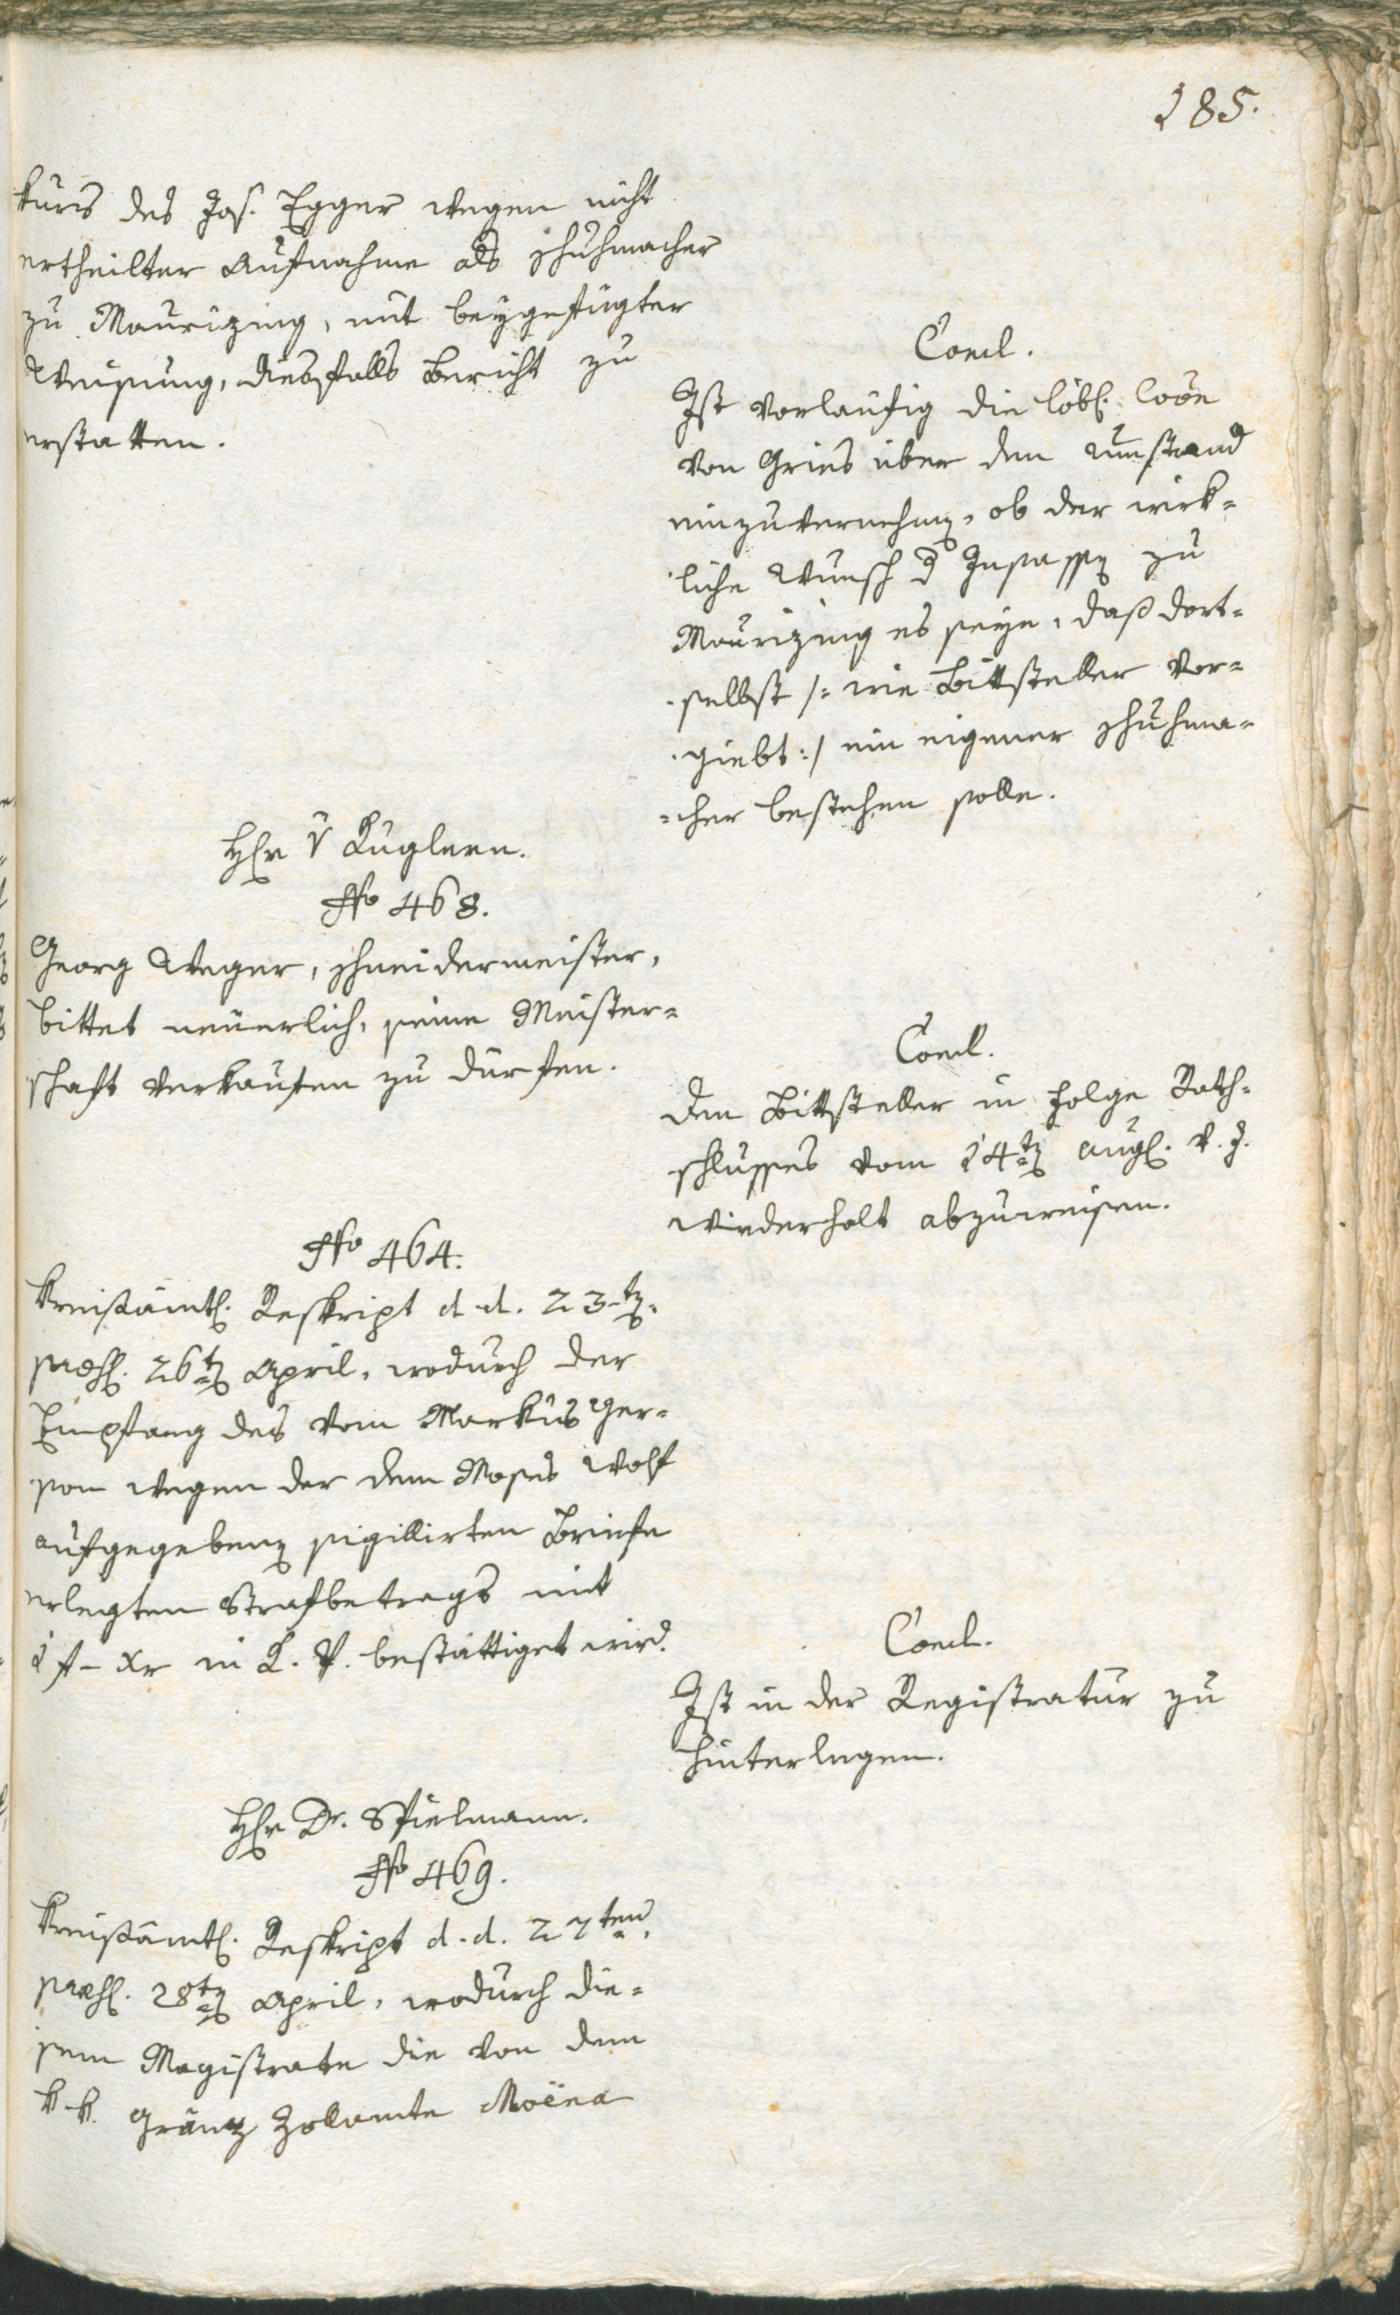 185.
kurs des Jos. Egger wegen nicht
ertheilter Aufnahme als Schuhmacher
zu Maurizing, mit beygefügter
Weisung, diesfalls Bericht zu
erstatten.
Concl.
Ist vorläufig die löbl.
von Gries über den Umstand
einzuvernehmen, ob der wirk=
liche Wunsch d Insassen zu
Maurizing es seye, daß dort=
selbst /: wie Bittsteller vor=
giebt :/ ein eigener Schuhma=
=cher bestehen solle.
Hhr v Kuglern.
No 468.
Georg Weger, Schneidermeister,
bittet neuerlich, seine Meister=
schaft verkaufen zu dürfen.
Concl.
Den Bittsteller in Folge Rath=
schlusses vom 14ten Aug. v. J.
wiederholt abzuweisen.
No 464.
Kreisämtl. Reskript d. d. 23ten,
præs. 26ten April, wodurch der
Empfang des vom Markus Ger=
son wegen der dem Moses Wolf
aufgegebenen sigillirten Briefe
erlegten Strafbetrags mit
1 f – xr in K. V. bestättiget wird.
Concl.
Ist in der Registratur zu
hinterlegen.
Hhr Dr. Spielmann.
No 469.
Kreisämtl. Reskript d. d. 27ten,
præs. 28ten April, wodurch die=
sem Magistrate die von dem
k. k. Gränz Zollamte Moëna